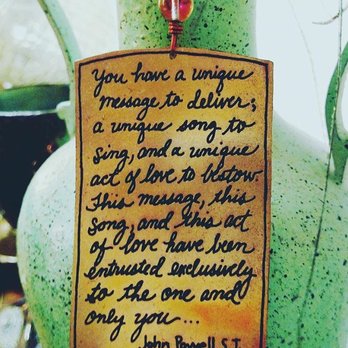 You have a unique
message to deliver;
a unique song to
sing, and a unique
act of love to bestow
This message, this
song, and this act
of love have been
entrusted exclusively
to the one and
only you...
John Powell S.J.